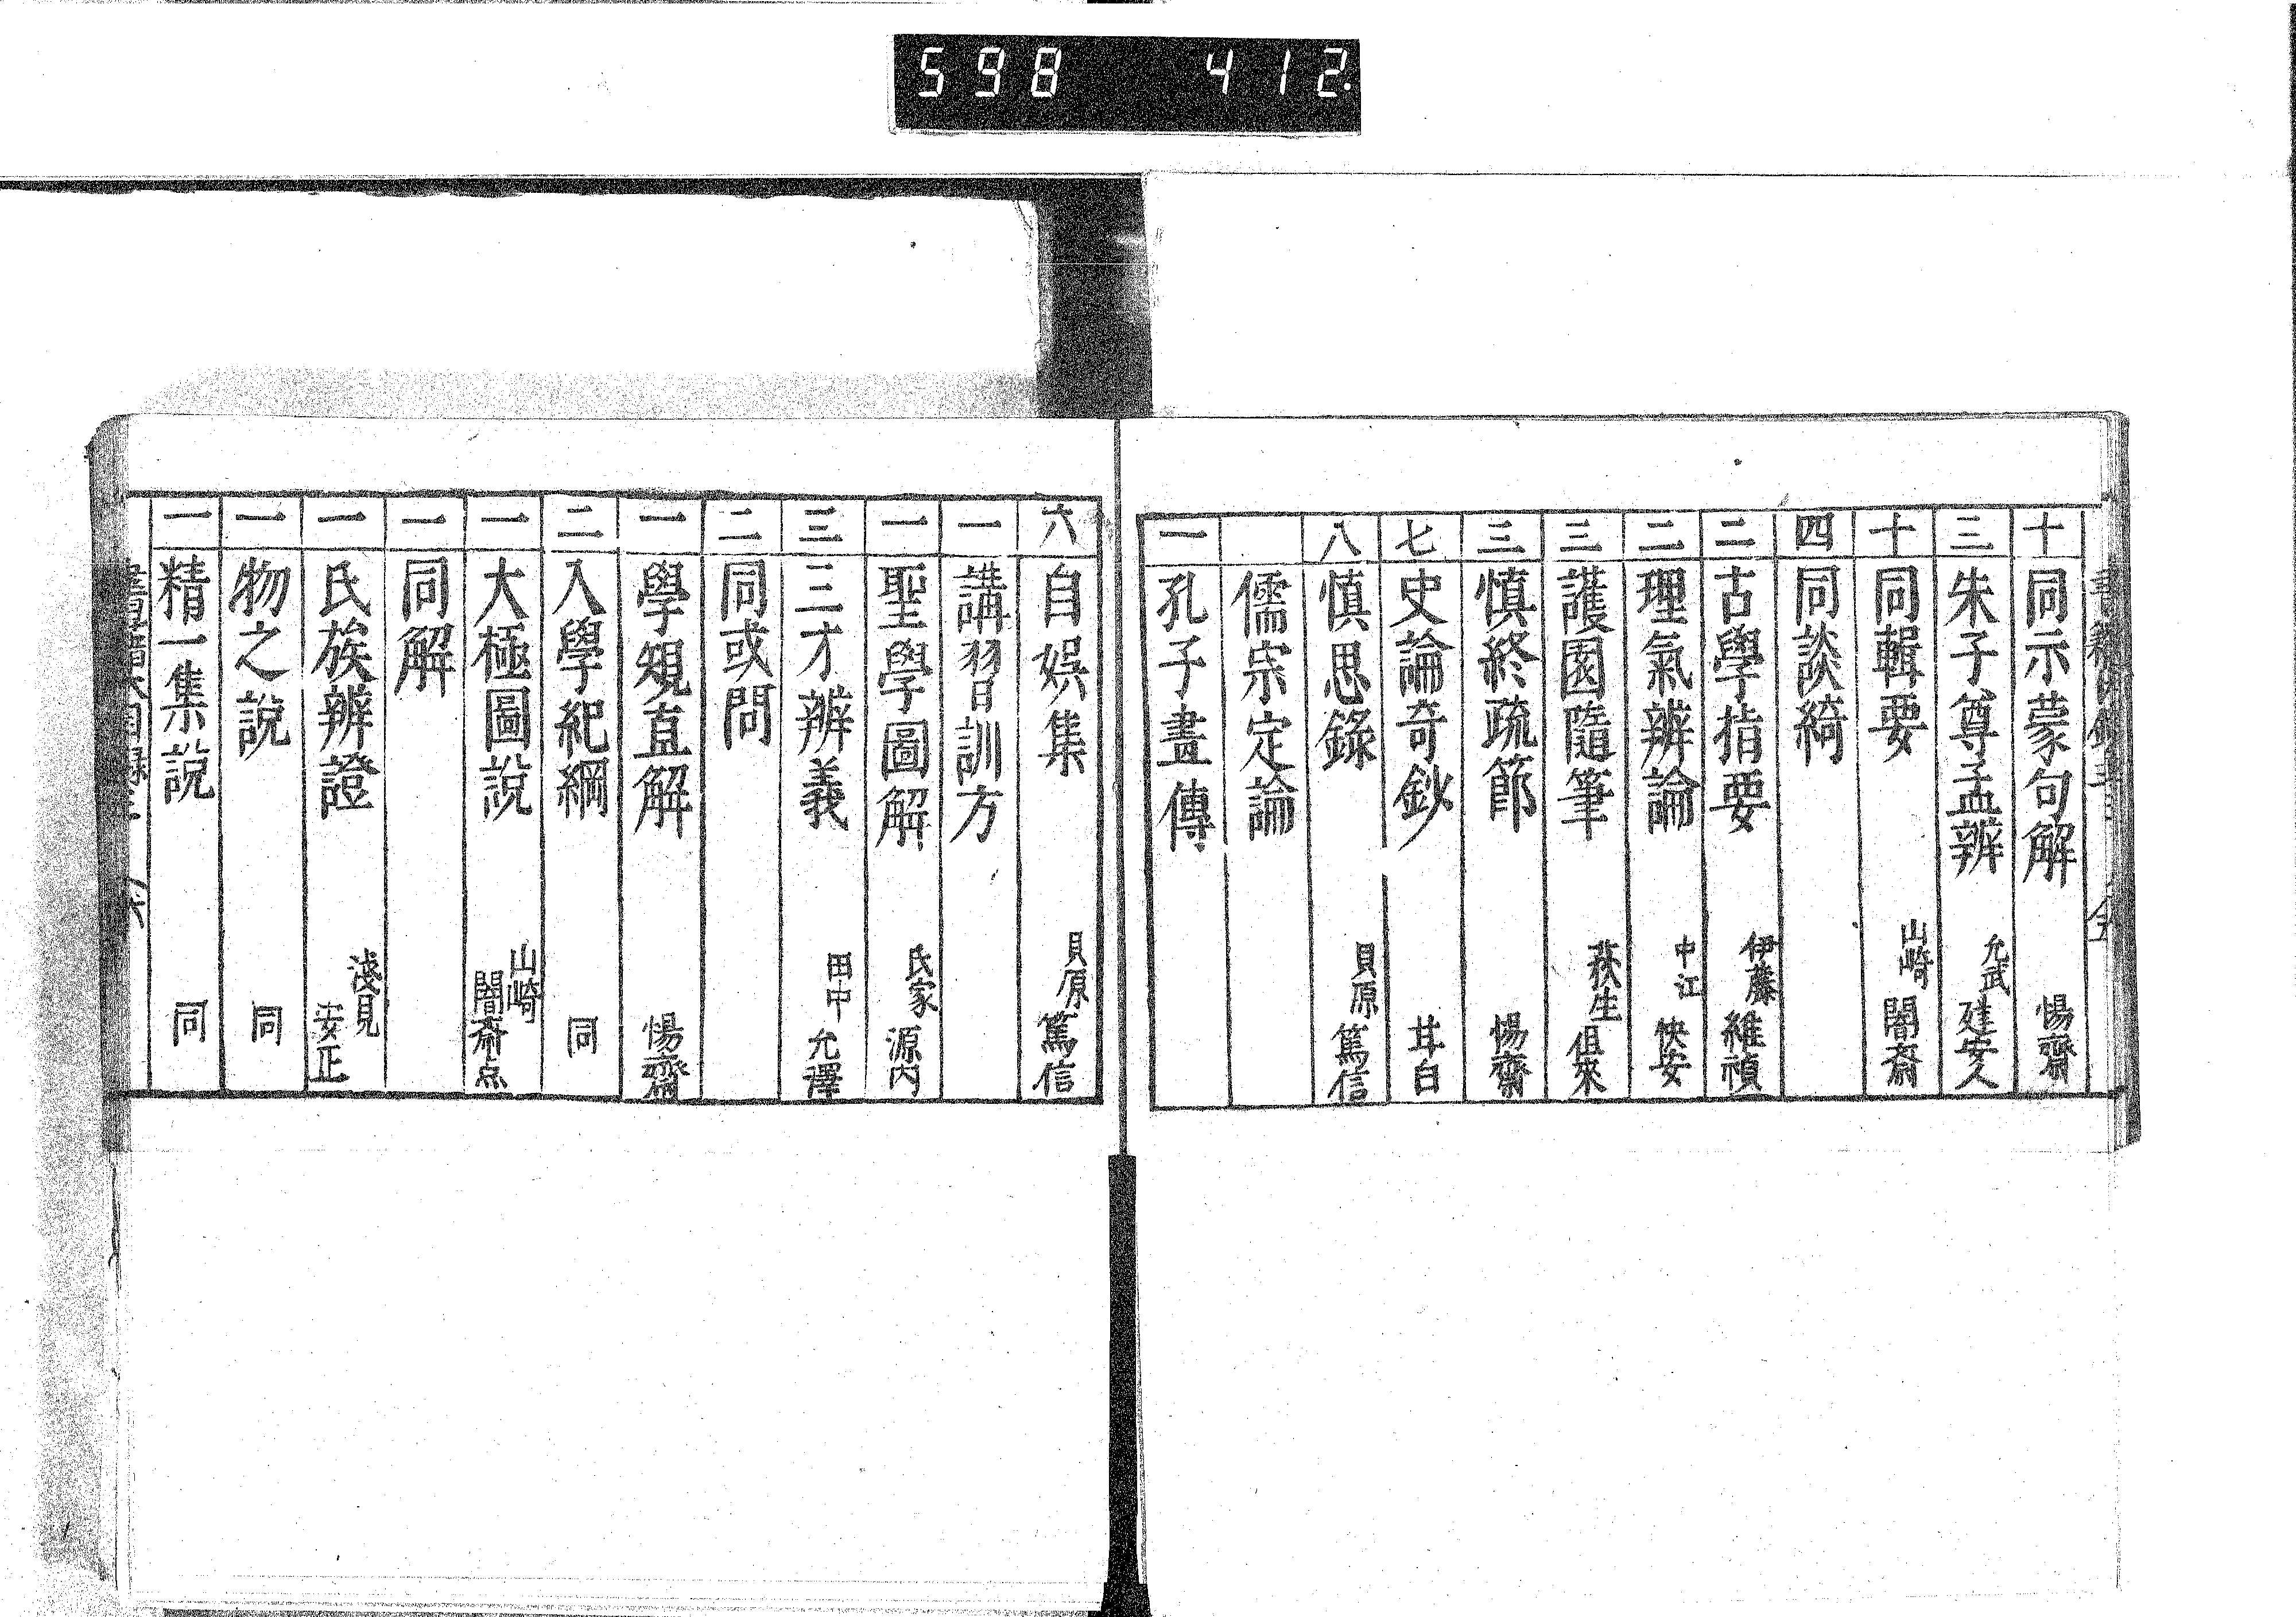 598 412.
十 同示蒙句解 惕齋
三 朱子尊孟辨 允武 建安人
十 同輯要 山崎 闇斎
四 同談綺
二 古學指要 伊藤 維禎
二 理氣辨論 中江 快安
三 護園隨筆 荻生 徂來
三 慎終疏節 惕齋
七 史論奇鈔 甘白
八 慎思錄 貝原 篤信
儒宗定論
一 孔子畫傳
六 自娯集 貝原 篤信
一 講習訓方
一 聖學圖解 氏家 源内
三 三才辨義 田中 允澤
二 同或問
一 學規直解 惕齋
二 入學紀綱 同
一 大極圖說 山崎 闇斎点
一 同解
一 氏族辨證 淺見 安正
一 物之說 同
一 精一集説 同
六